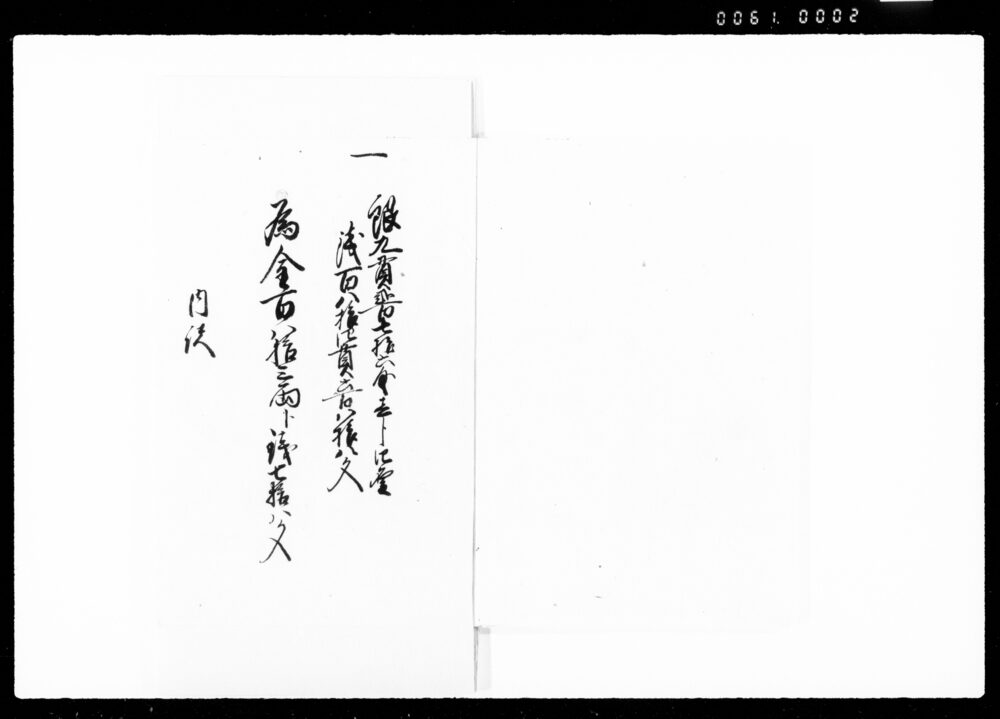 0061. 0002
一 銀九貫 百七拾六匁 分 厘
銭百八拾 貫 百八拾八文
為金百八拾三両ト銭七拾八文
内訳